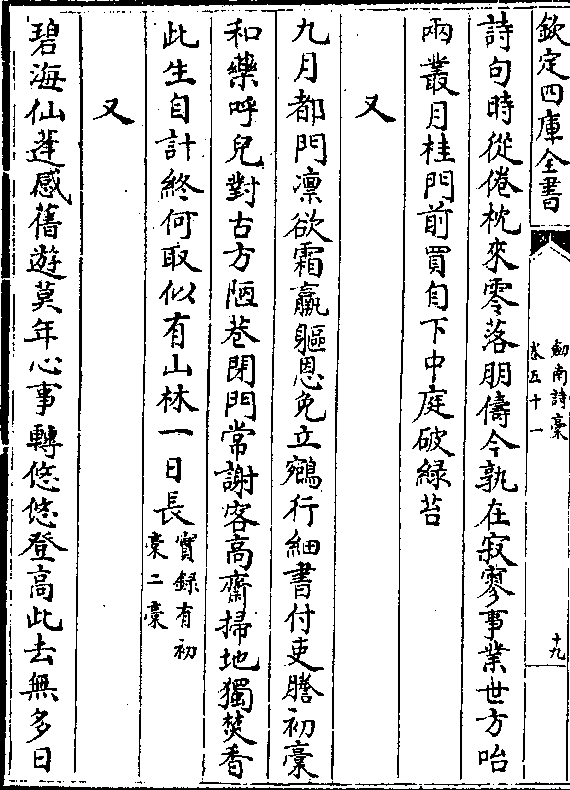 欽定四庫全書
劍南詩稾
卷五十一
十九
詩句時從倦枕來零落朋儔今孰在寂寥事業世方咍
兩叢月桂門前買自下中庭破綠苔
又
九月都門凛欲霜羸軀恩免立鵷行細書付吏謄初稾
和藥呼兒對古方陋巷閉門常謝客高齋掃地獨焚香
此生自計終何取似有山林一日長
實録有初
稾二稾
又
碧海仙蓬感舊遊莫年心事轉悠悠登高此去無多日